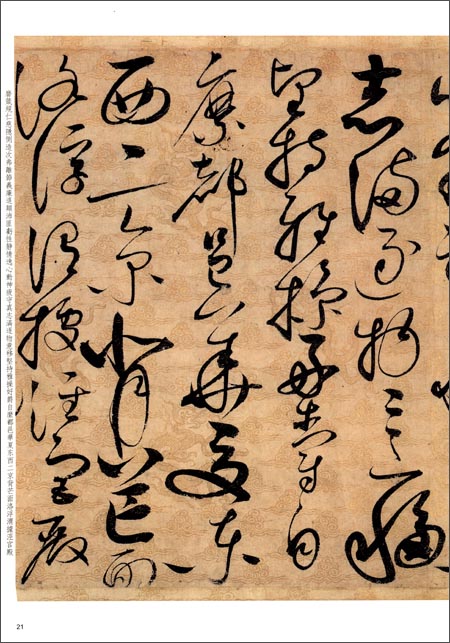 志滿逐物意移
堅持雅操好爵自
縻都邑華夏東
西二京背芒面
洛浮渭據涇宮殿
磨箴規仁慈隱惻造次弗離節義廉退顛沛匪虧性靜情逸心動神疲守真志滿逐物意移堅持雅操好爵自縻都邑華夏东西二京背芒面洛浮渭據涇宫殿
21